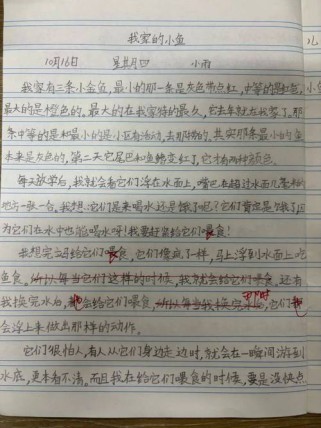 我家的小鱼
10月16日 星期四 小雨
我家有三条小金鱼,最小的那一条是灰色带点红,中等的是红色,
最大的是橙色的,最大的在我家待的最久,它去年就在我家了。那
条中等的是和最小的是小区有活动,去那的。其实那条最小的鱼
本来是灰色的,第二天它尾巴和鱼鳍变红了,它才有两种颜色。
每天放学后,我就会看它们浮在水面上,嘴巴在超过水面几毫米的
地方一张一合。我想:它们是来喝水还是饿了呢?它们肯定是饿了,因
为它们在水中也能喝水呀!我要赶紧给它们喂食!
我想完立马给它们喂食,它们像疯了一样,马上浮到水面上吃
鱼食。所以每当它们这样的时候,我就会给它们喂食。还有
我换完水后,也会给它们喂食,所以每当我换完水后,那时它们也
会浮上来做出那样的动作。
它们很怕人,有人从它们身边走过时,就会在一瞬间游到
水底,更本看不清。而且我在给它们喂食的时候,要是没快点